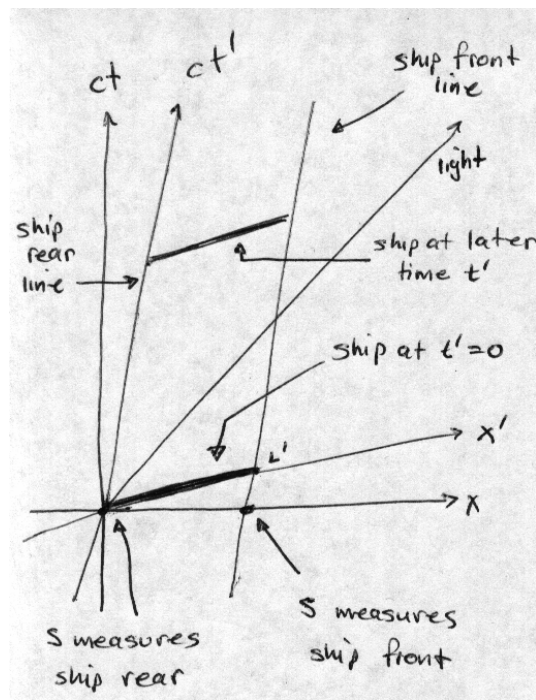 ct
ct'
ship front
line
light
ship
rear
line
ship at later
time t'
ship at t'=0
L'
x'
x
S measures
ship rear
S measures
ship front